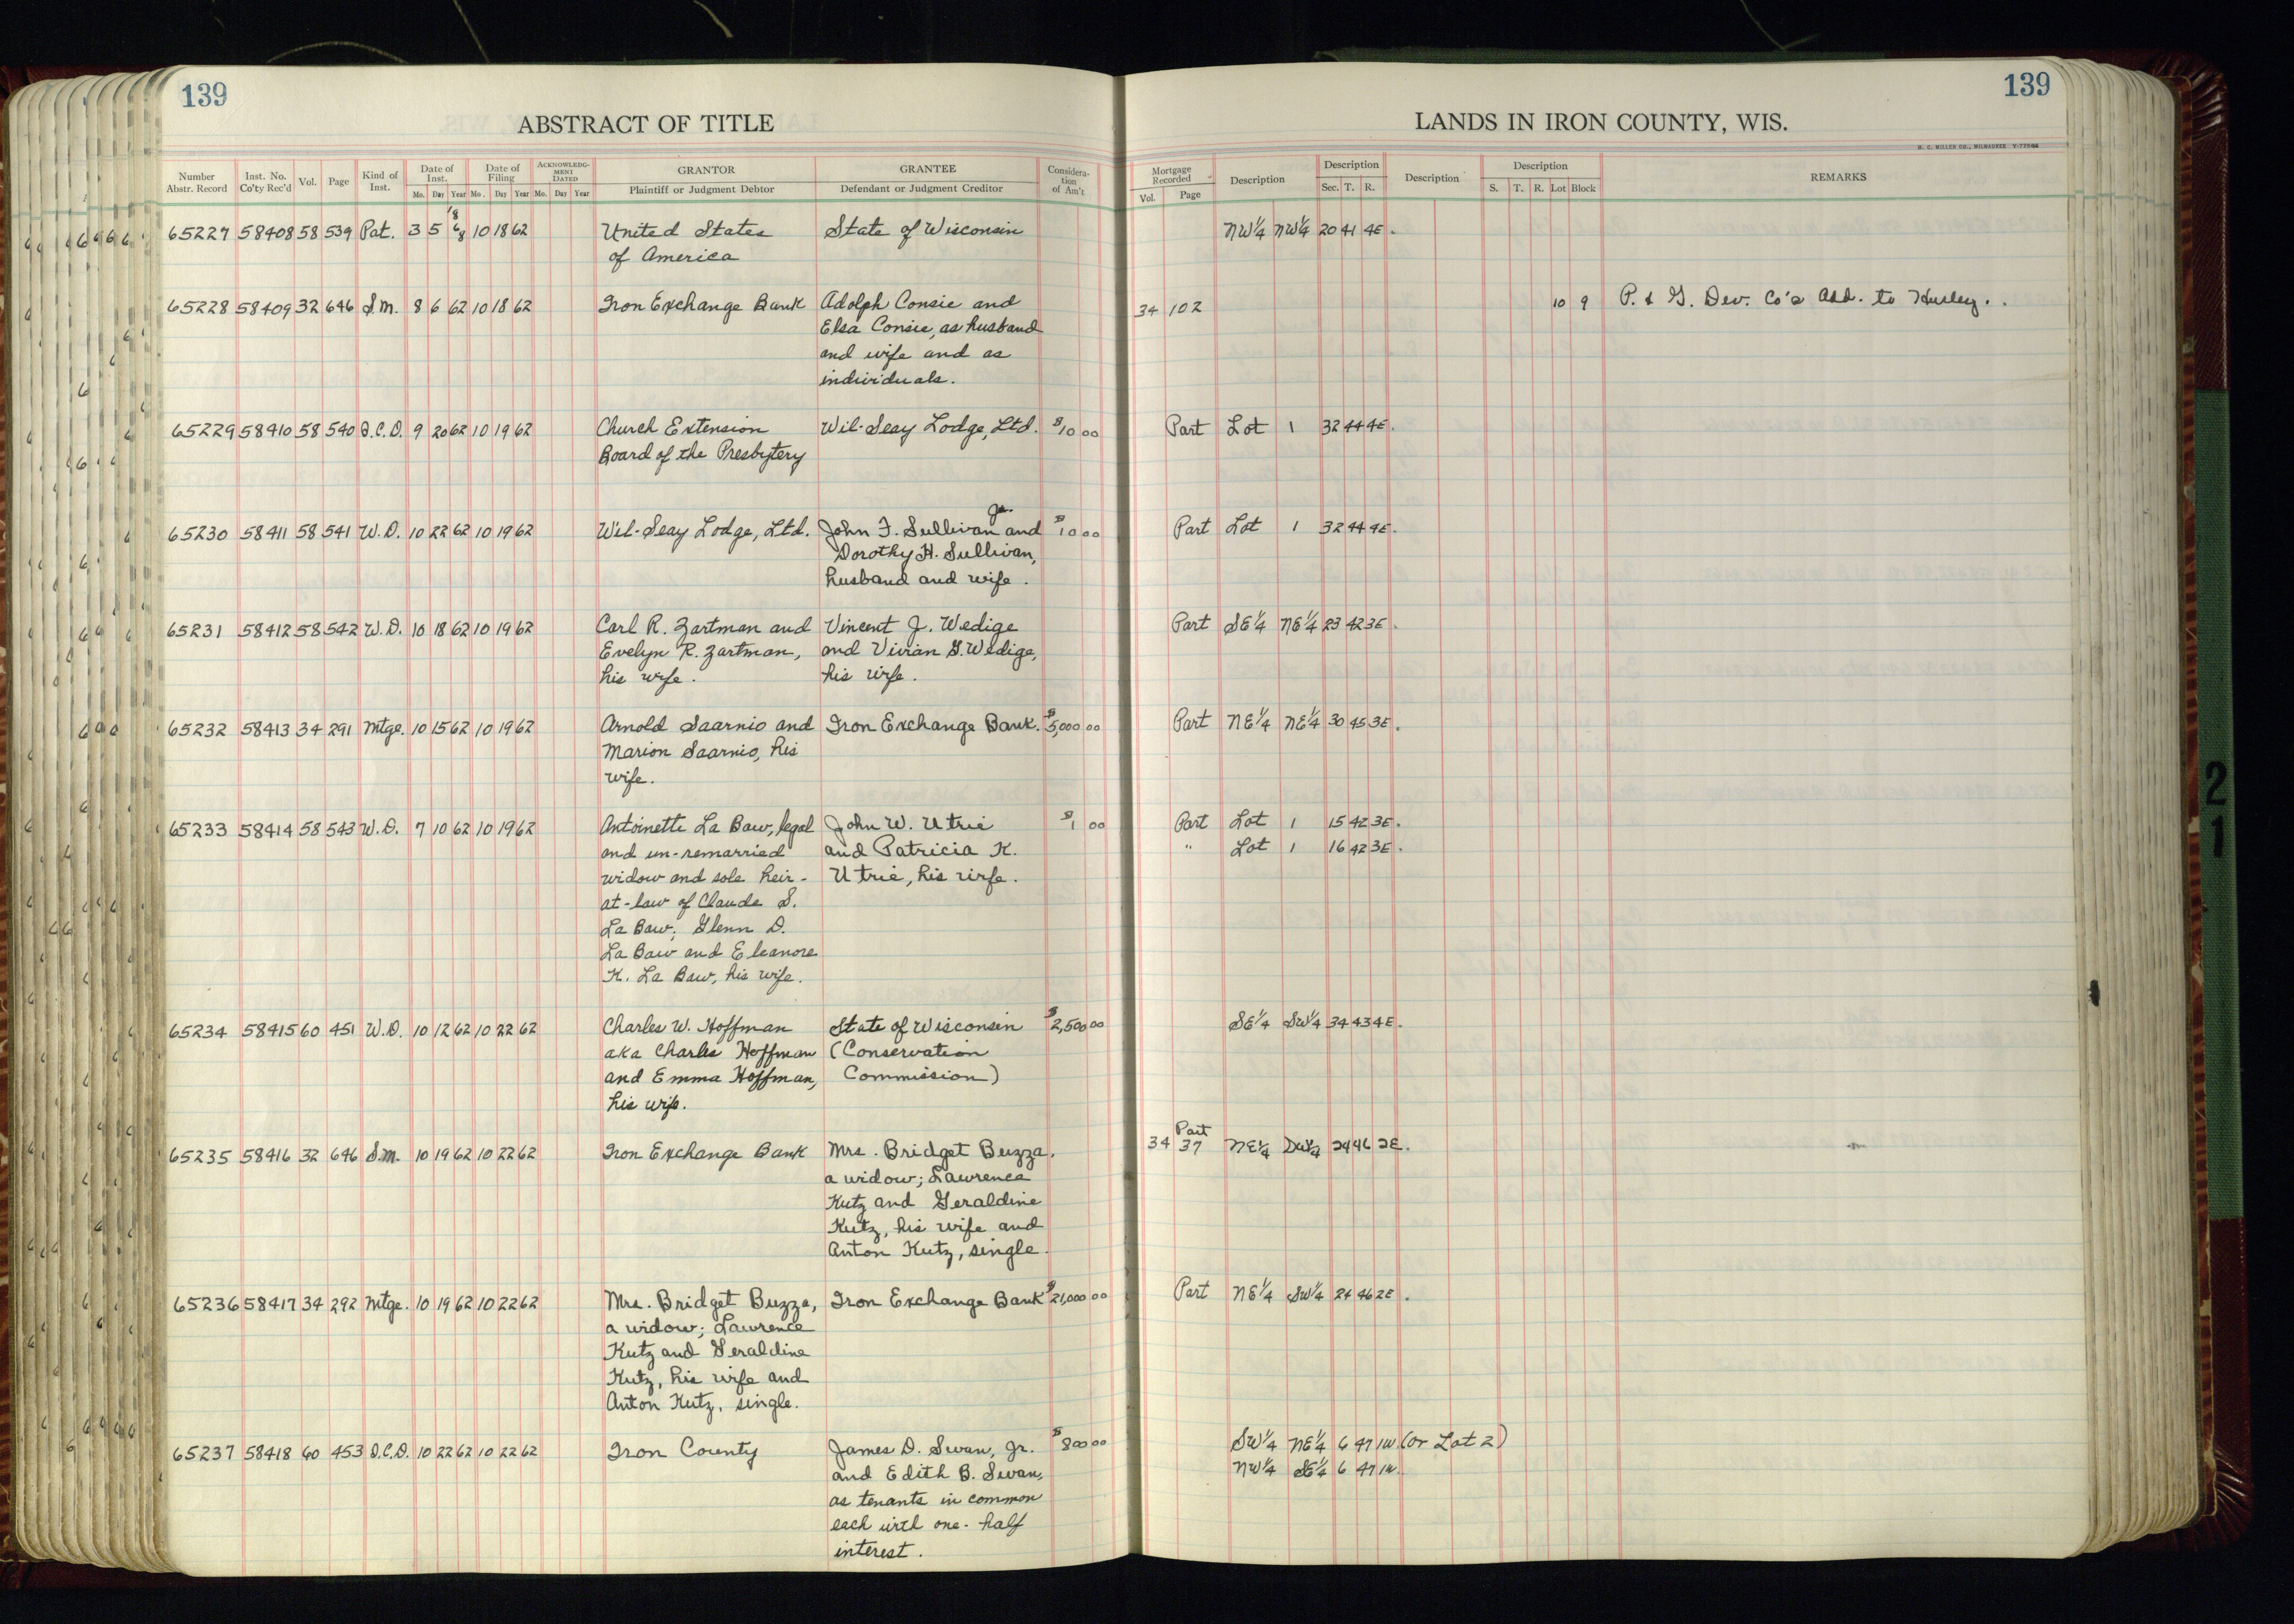 139
ABSTRACT OF TITLE
Number Abstr. Record Inst. No. Co'ty Rec'd Vol. Page Kind of Inst. Date of Inst. Mo. Day Year Date of Filing Mo. Day Year ACKNOWLEDGMENT DATED Mo. Day Year GRANTOR Plaintiff or Judgment Debtor GRANTEE Defendant or Judgment Creditor Consideration of Am't
139
LANDS IN IRON COUNTY, WIS.
H. C. MILLER CO., MILWAUKEE
Mortgage Recorded Vol. Page Description Description Sec. T. R. Description Description S. T. R. Lot Block REMARKS
65227 58408 58 539 Pat. 3 5 1868 10 18 62 United States State of Wisconsin NW¼ NW¼ 20 41 4E.
of America
65228 58409 32 646 S.M. 8 6 62 10 18 62 Iron Exchange Bank Adolph Consie and 34 102 10 9 P. & G. Dev. Co's Add. to Hurley.
Elsa Consie, as husband
and wife and as
individuals.
65229 58410 58 540 Q.C.D. 9 20 62 10 19 62 Church Extension Wil-Seay Lodge, Ltd. $10 00 Part Lot 1 32 44 4E.
Board of the Presbytery
65230 58411 58 541 W.D. 10 22 62 10 19 62 Wil-Seay Lodge, Ltd. John F. Sullivan Jr. and $10 00 Part Lot 1 32 44 4E.
Dorothy H. Sullivan,
husband and wife.
65231 58412 58 542 W.D. 10 18 62 10 19 62 Carl R. Zartman and Vincent J. Wedige Part SE¼ NE¼ 23 42 3E.
Evelyn R. Zartman, and Vivian G. Wedige,
his wife. his wife.
65232 58413 34 291 Mtge. 10 15 62 10 19 62 Arnold Saarnio and Iron Exchange Bank. $5,000 00 Part NE¼ NE¼ 30 45 3E.
Marion Saarnio, his
wife.
65233 58414 58 543 W.D. 7 10 62 10 19 62 Antoinette La Baw, legal John W. Utrie $1 00 Part Lot 1 15 42 3E.
and un-remarried and Patricia K. " Lot 1 16 42 3E.
widow and sole heir- Utrie, his wife.
at-law of Claude S.
La Baw; Glenn D.
La Baw and Eleanore
K. La Baw, his wife.
65234 58415 60 451 W.D. 10 12 62 10 22 62 Charles W. Hoffman State of Wisconsin $2,500 00 SE¼ SW¼ 34 43 4E.
aka Charles Hoffman (Conservation
and Emma Hoffman, Commission)
his wife.
65235 58416 32 646 S.M. 10 19 62 10 22 62 Iron Exchange Bank Mrs. Bridget Buzza, 34 Part 37 NE¼ SW¼ 24 46 2E.
a widow; Lawrence
Kutz and Geraldine
Kutz, his wife and
Anton Kutz, single.
65236 58417 34 292 Mtge. 10 19 62 10 22 62 Mrs. Bridget Buzza, Iron Exchange Bank $21,000 00 Part NE¼ SW¼ 24 46 2E.
a widow; Lawrence
Kutz and Geraldine
Kutz, his wife and
Anton Kutz, single.
65237 58418 60 453 Q.C.D. 10 22 62 10 22 62 Iron County James D. Swan, Jr. $800 00 SW¼ NE¼ 6 47 1W (or Lot 2)
and Edith B. Swan, NW¼ SE¼ 6 47 1W.
as tenants in common
each with one-half
interest.
21